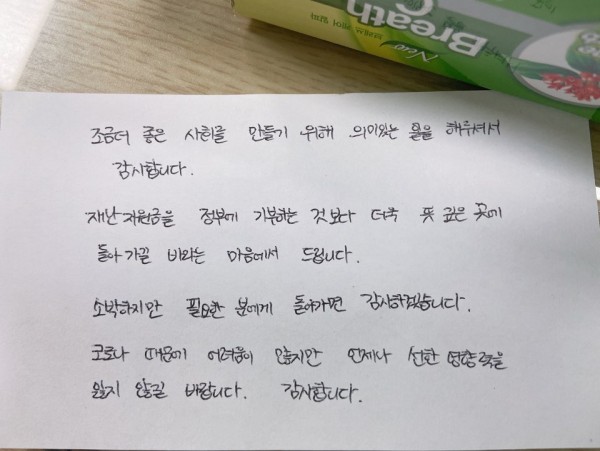 New
Breath
브레쓰 케어 알파
조금더 좋은 사회를 만들기 위해 의미있는 일을 해주셔서
감사합니다.
재난지원금을 정부에 기부하는 것보다 더욱 뜻 깊은 곳에
돌아가길 바라는 마음에서 드립니다.
소박하지만 필요한 분에게 돌아가면 감사하겠습니다.
코로나 때문에 어려움이 많지만 언제나 선한 영향력을
잃지 않길 바랍니다. 감사합니다.